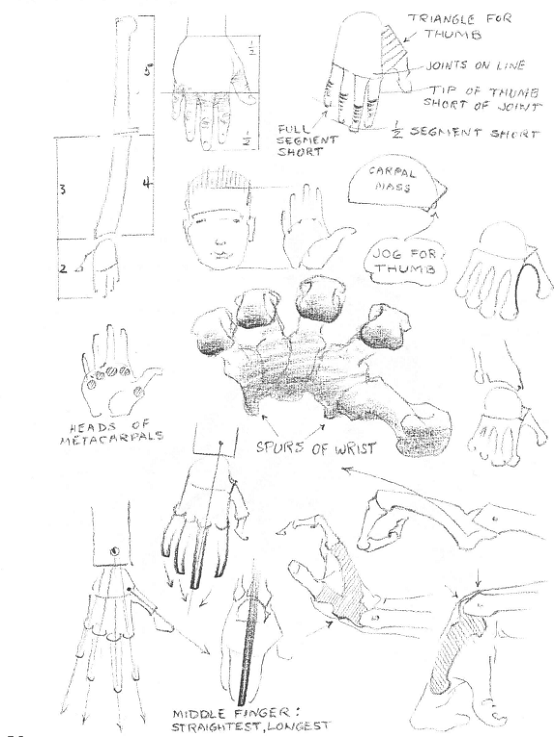 TRIANGLE FOR
THUMB
JOINTS ON LINE
TIP OF THUMB
SHORT OF JOINT
1/2 SEGMENT SHORT
FULL
SEGMENT
SHORT
1/2
1/2
5
3
4
2
CARPAL
MASS
JOG FOR
THUMB
HEADS OF
METACARPALS
SPURS OF WRIST
MIDDLE FINGER:
STRAIGHTEST, LONGEST